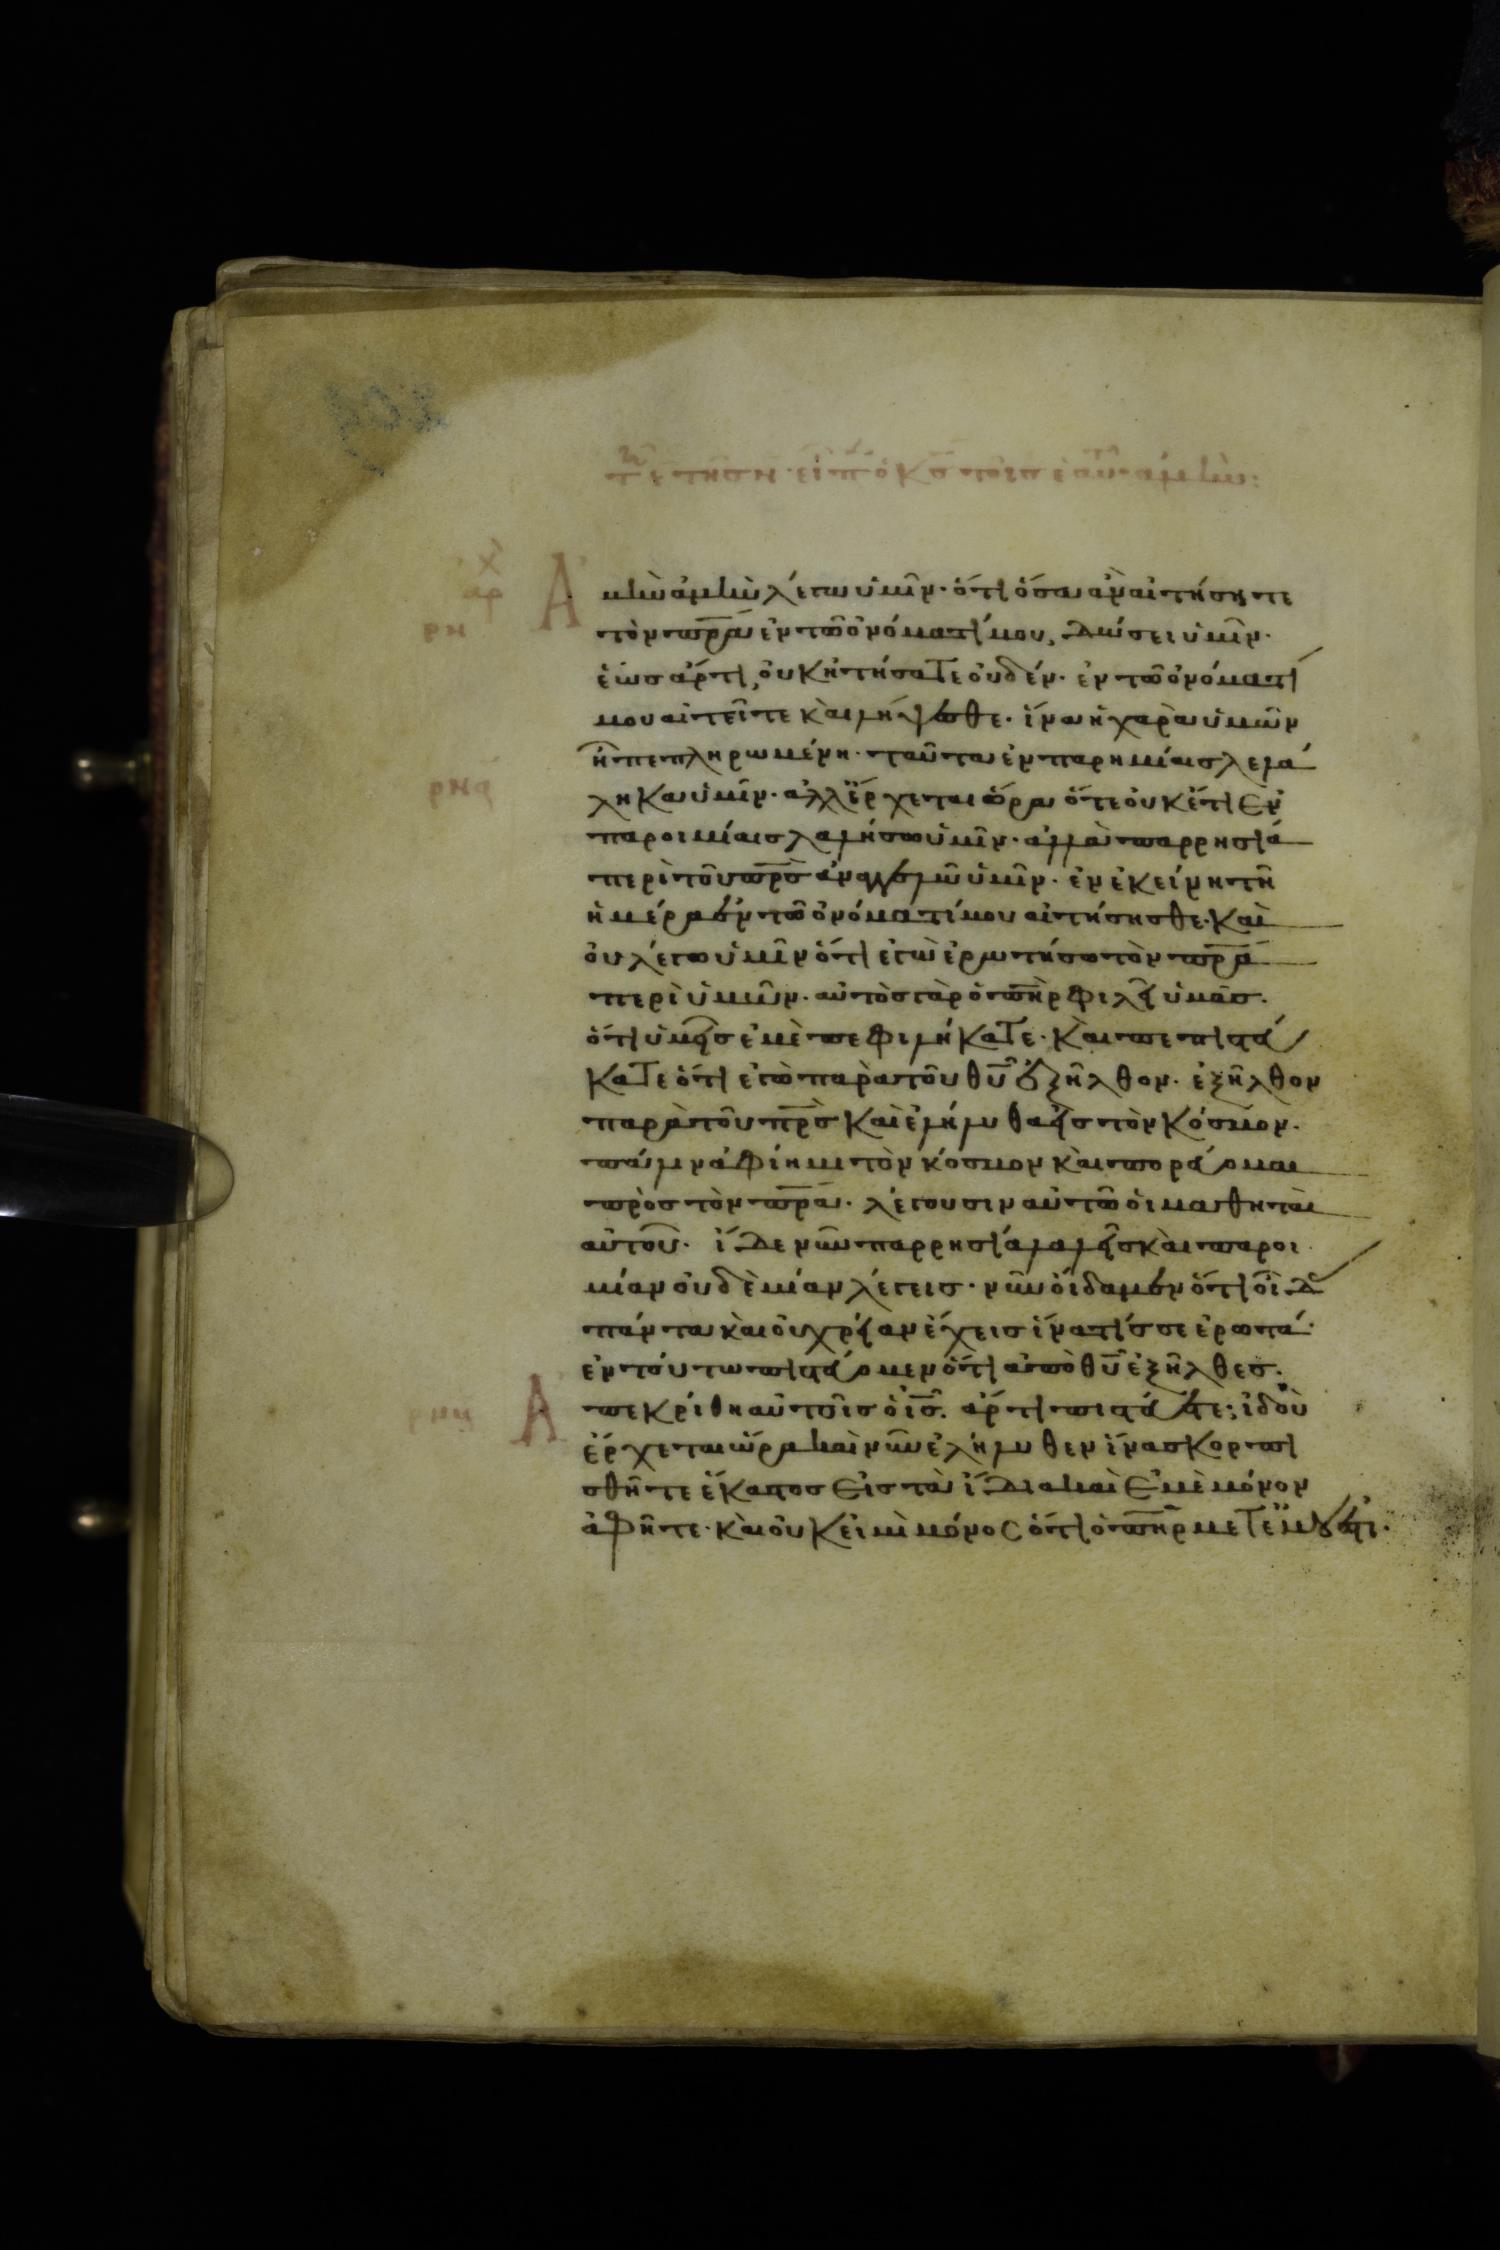 τῆ ε τῆς ν· εἶπ ὁ κς τοῖς ἑαυ μαθ ἀμὴν:
Ἀμὴν ἀμὴν λέγω ὑμῖν· ὅτι ὅσα ἂν αἰτήσητε
τὸν πρα ἐν τῶ ὀνόματί μου, δώσει ὑμῖν·
ἕως ἄρτι, οὐκ ἠτήσατε οὐδέν· ἐν τῶ ὀνόματί
μου αἰτεῖτε καὶ λήψεσθε· ἵνα ἡ χαρὰ ὑμῶν
ἦ πεπληρωμένη· ταῦτα ἐν παρημίαις λελά
ληκα ὑμῖν· ἀλλ' ἔρχεται ὥρα ὅτε οὐκέτι ἐν
παροιμίαις λαλήσω ὑμῖν· ἀλλὰ παρρησία
περὶ τοῦ πρς ἀναγγελῶ ὑμῖν· ἐν ἐκείνη τῆ
ἡμέρα ἐν τῶ ὀνόματί μου αἰτήσησθε· καὶ
οὐ λέγω ὑμῖν ὅτι ἐγὼ ἐρωτήσω τὸν πρα
περὶ ὑμῶν· αὐτὸς γὰρ ὁ πηρ φιλεῖ ὑμᾶς·
ὅτι ὑμεῖς ἐμὲ πεφιλήκατε· καὶ πεπιστεύ
κατε ὅτι ἐγὼ παρὰ τοῦ θυ ἐξῆλθον· ἐξῆλθον
παρὰ τοῦ πρς καὶ ἐλήλυθα εἰς τὸν κόσμον·
πάλιν ἀφίημι τὸν κόσμον καὶ πορεύομαι
πρὸς τὸν πρα· λέγουσιν αὐτῶ οἱ μαθηταὶ
αὐτοῦ· ἴδε νῦν παρρησία λαλεῖς καὶ παροι
μίαν οὐδὲμίαν λέγεις· νῦν οἴδαμεν ὅτι οἶδας
πάντα καὶ οὐ χρείαν ἔχεις ἵνα τίς σε ἐρωτᾶ·
ἐν τούτω πιστεύομεν ὅτι ἀπὸ θυ ἐξῆλθες·
Ἀπεκρίθη αὐτοῖς ὁ ις· ἄρτι πιστεύετε; ἰδοὺ
ἔρχεται ὥρα καὶ νῦν ἐλήλυθεν ἵνα σκορπι
σθῆτε ἕκαστος εἰς τὰ ἴδια καὶ ἐμὲ μόνον
ἀφῆτε· καὶ οὐκ εἰμὶ μόνος ὅτι ὁ πηρ μετ' ἐμοῦ ἐστι·
αρ
ρμ
ρμα
ρμη